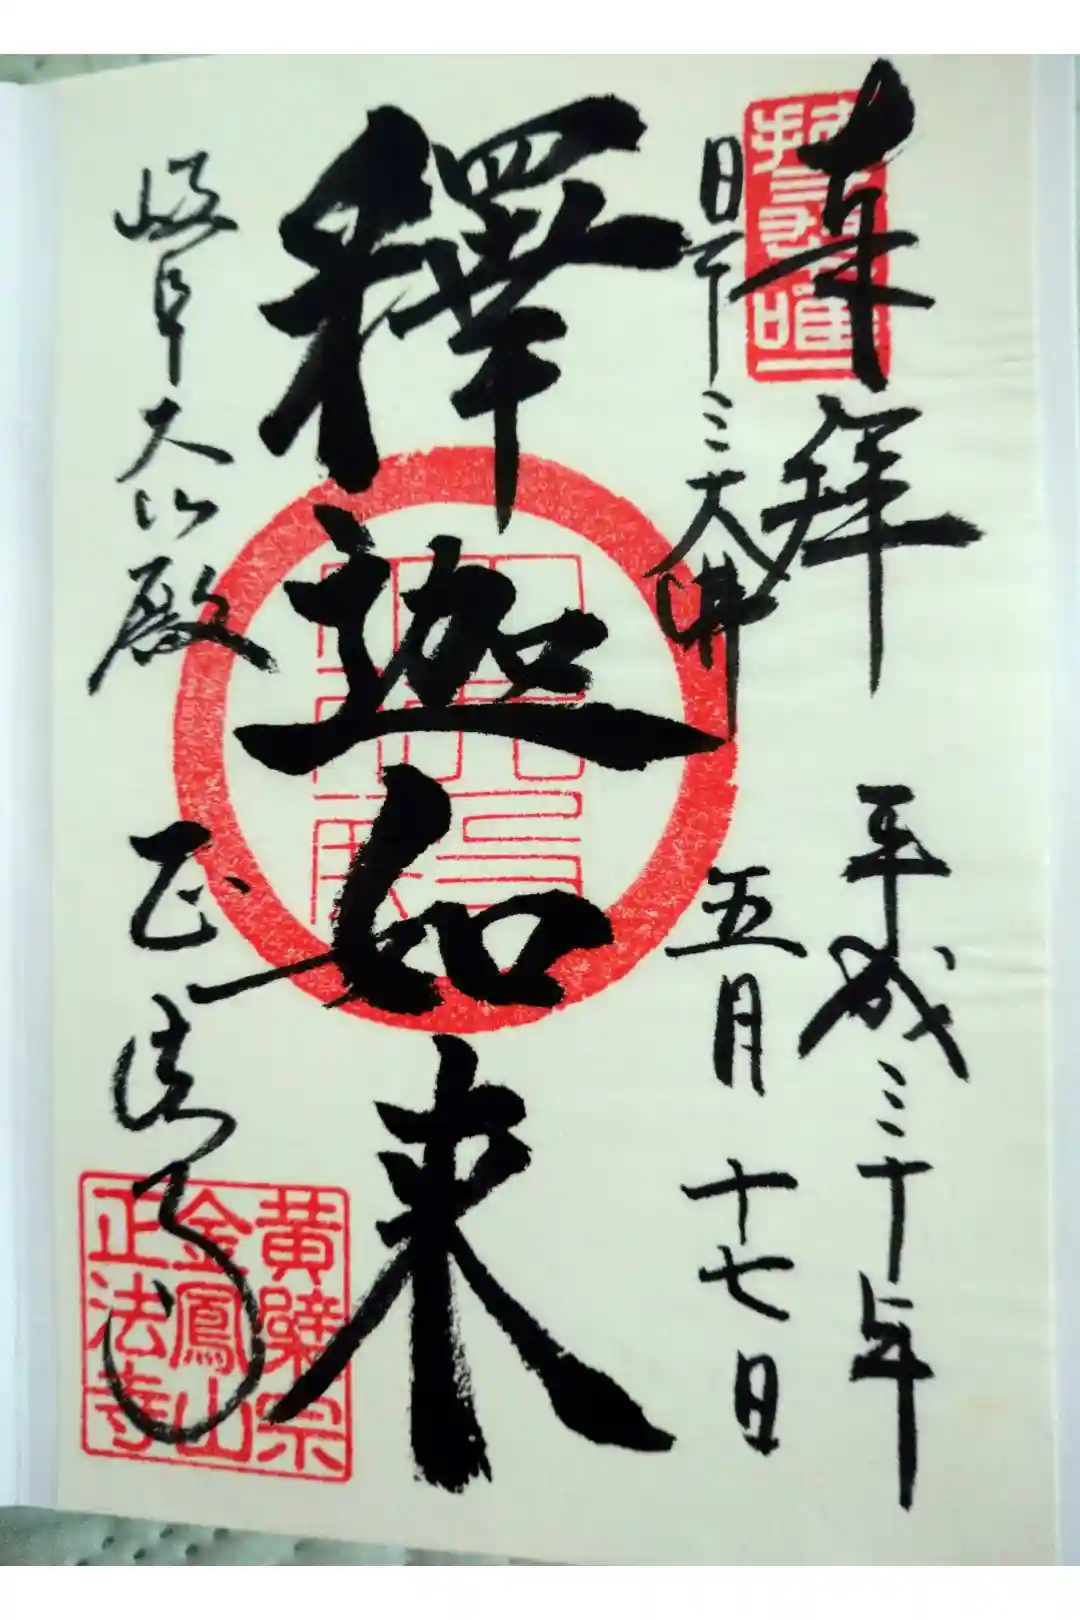 奉拝
平成三十年
日本三大佛
五月十七日
釋迦如来
岐阜大仏殿
正法寺
黄檗宗
金鳳山
正法寺